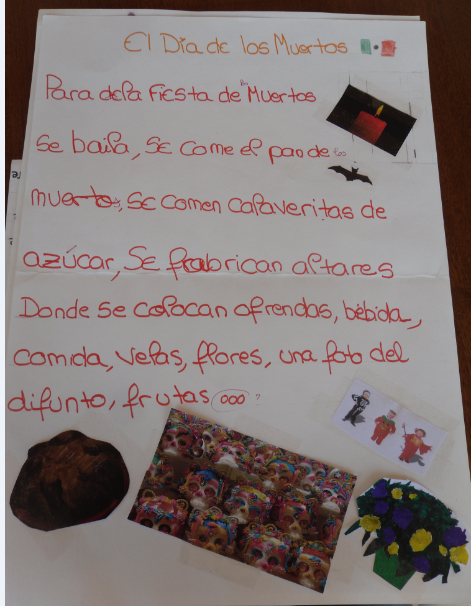 El Día de los Muertos
Para dela fiesta de los Muertos
Se baila, se come el pan de los
muerto, se comen calaveritas de
azúcar, Se frabrican altares
Donde se colocan ofrendas, bébida,
comida, velas, flores, una foto del
difunto, frutas ooo ?